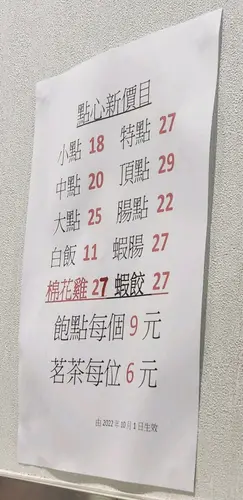 點心新價目
小點 18 特點 27
中點 20 頂點 29
大點 25 腸點 22
白飯 11 蝦腸 27
棉花雞 27 蝦餃 27
飽點每個 9 元
茗茶每位 6 元
由 2022 年 10 月 1 日生效